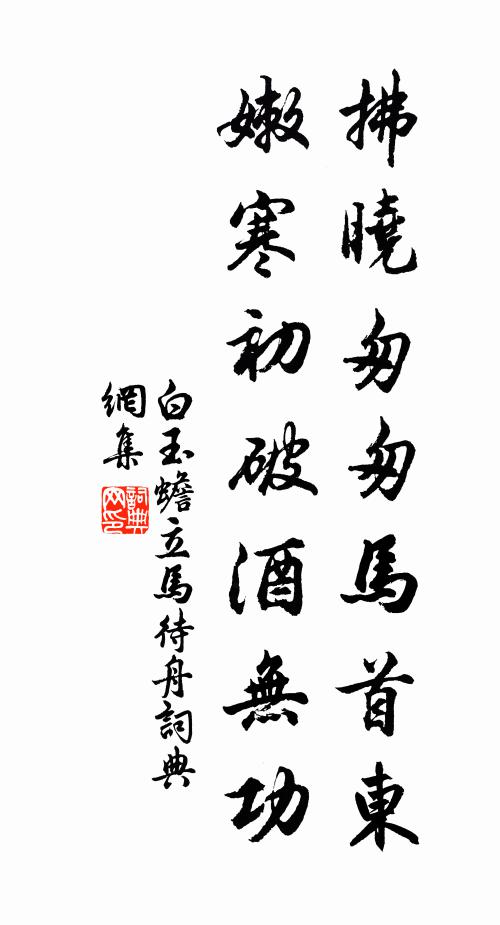 拂曉匆匆馬首東
嫩寒初破酒無功
白玉蟾立馬待舟詞典
網集
詞典
网印